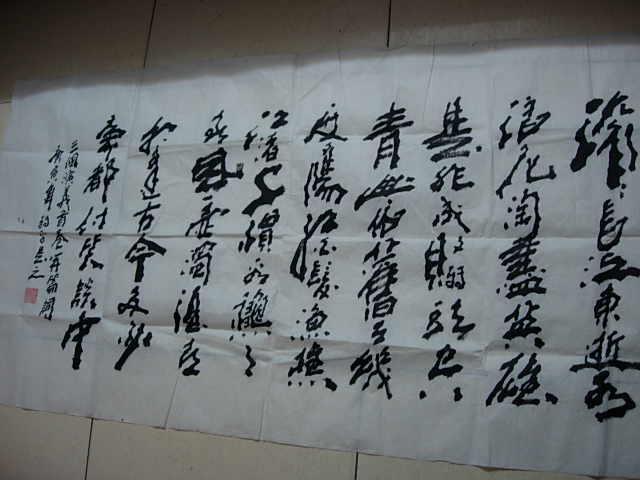 滚滚長江東逝水
浪花淘盡英雄
是非成敗轉頭空
青山依舊在幾
度夕陽紅白髮漁樵
江渚上慣看龝月
春風一壺濁酒喜
相逢古今多少
事都付笑談中
三國演義